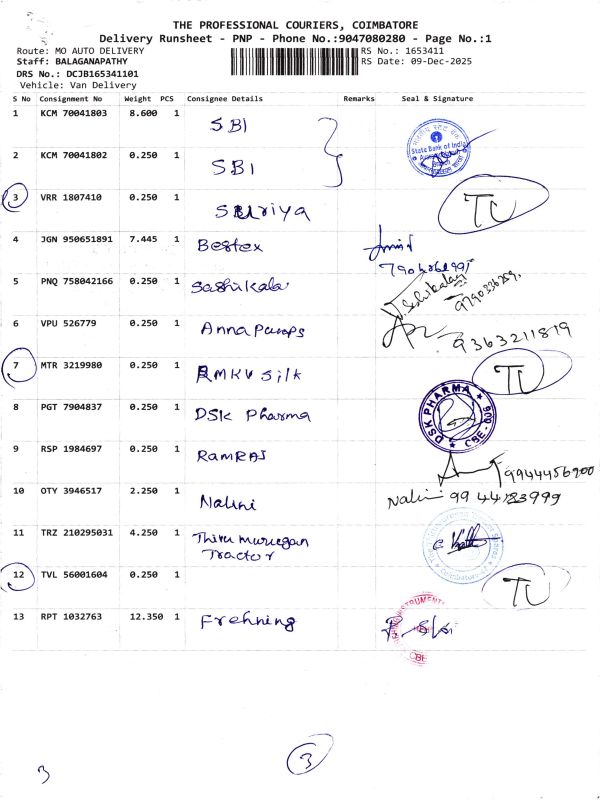 THE PROFESSIONAL COURIERS, COIMBATORE
Delivery Runsheet - PNP - Phone No.:9047080280 - Page No.:1
Route: MO AUTO DELIVERY RS No.: 1653411
Staff: BALAGANAPATHY RS Date: 09-Dec-2025
DRS No.: DCJB165341101
Vehicle: Van Delivery
S No Consignment No Weight PCS Consignee Details Remarks Seal & Signature
1 KCM 70041803 8.600 1 SBI State Bank of India
2 KCM 70041802 0.250 1 SBI
3 VRR 1807410 0.250 1 Suriya TU
4 JGN 950651891 7.445 1 Bestex
5 PNQ 758042166 0.250 1 Sashikala 9790336259
6 VPU 526779 0.250 1 Anna Pumps 9363211819
7 MTR 3219980 0.250 1 RMKV Silk TU
8 PGT 7904837 0.250 1 DSK Pharma DSK PHARMA CBE-009
9 RSP 1984697 0.250 1 RAMRAJ 9944456900
10 OTY 3946517 2.250 1 Nalini Nalini 9944123999
11 TRZ 210295031 4.250 1 Thiru murugan
Tractor
12 TVL 56001604 0.250 1 TU
13 RPT 1032763 12.350 1 Frehning
3
3